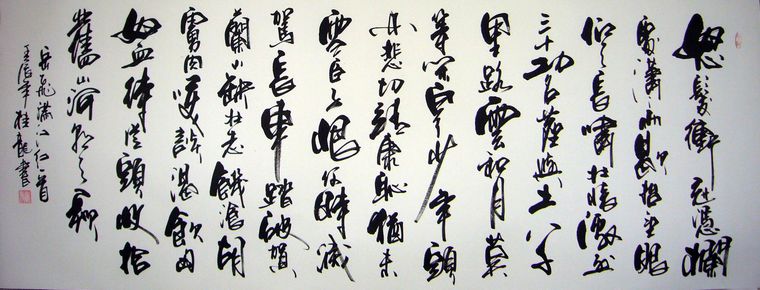 怒髮衝冠憑欄
處瀟瀟雨歇抬望眼
仰天長嘯壯懷激烈
三十功名塵與土八千
里路雲和月莫
等閒白了少年頭
空悲切靖康恥猶未
雪臣子恨何時滅
駕長車踏破賀
蘭山缺壯志饑餐胡
虜肉笑談渴飲匈
奴血待從頭收拾
舊山河朝天闕
岳飛滿江紅一首
年桂龍書